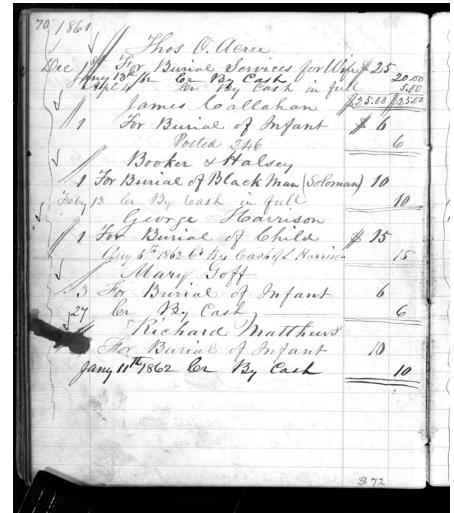 70 1861
Thos O. Acree
Dec 1st For Burial Services for Wife $25
Jany 13th Cr By Cash 20.00
Apl 4 Cr By Cash in full 5.00
$25.00 $25.00
James Callahan
1 For Burial of Infant $6
Posted 246 6
Booker & Halsey
1 For Burial of Black Man (Soloman) 10
Feby 13 Cr By Cash in full 10
George Harrison
1 For Burial of Child $15
Aug 6th 1862 Cr By Cash L. Harrison 15
Mary Goff
3 For Burial of Infant 6
27 Cr By Cash 6
Richard Matthews
For Burial of Infant 10
Jany 11th 1862 Cr By Cash 10
$72